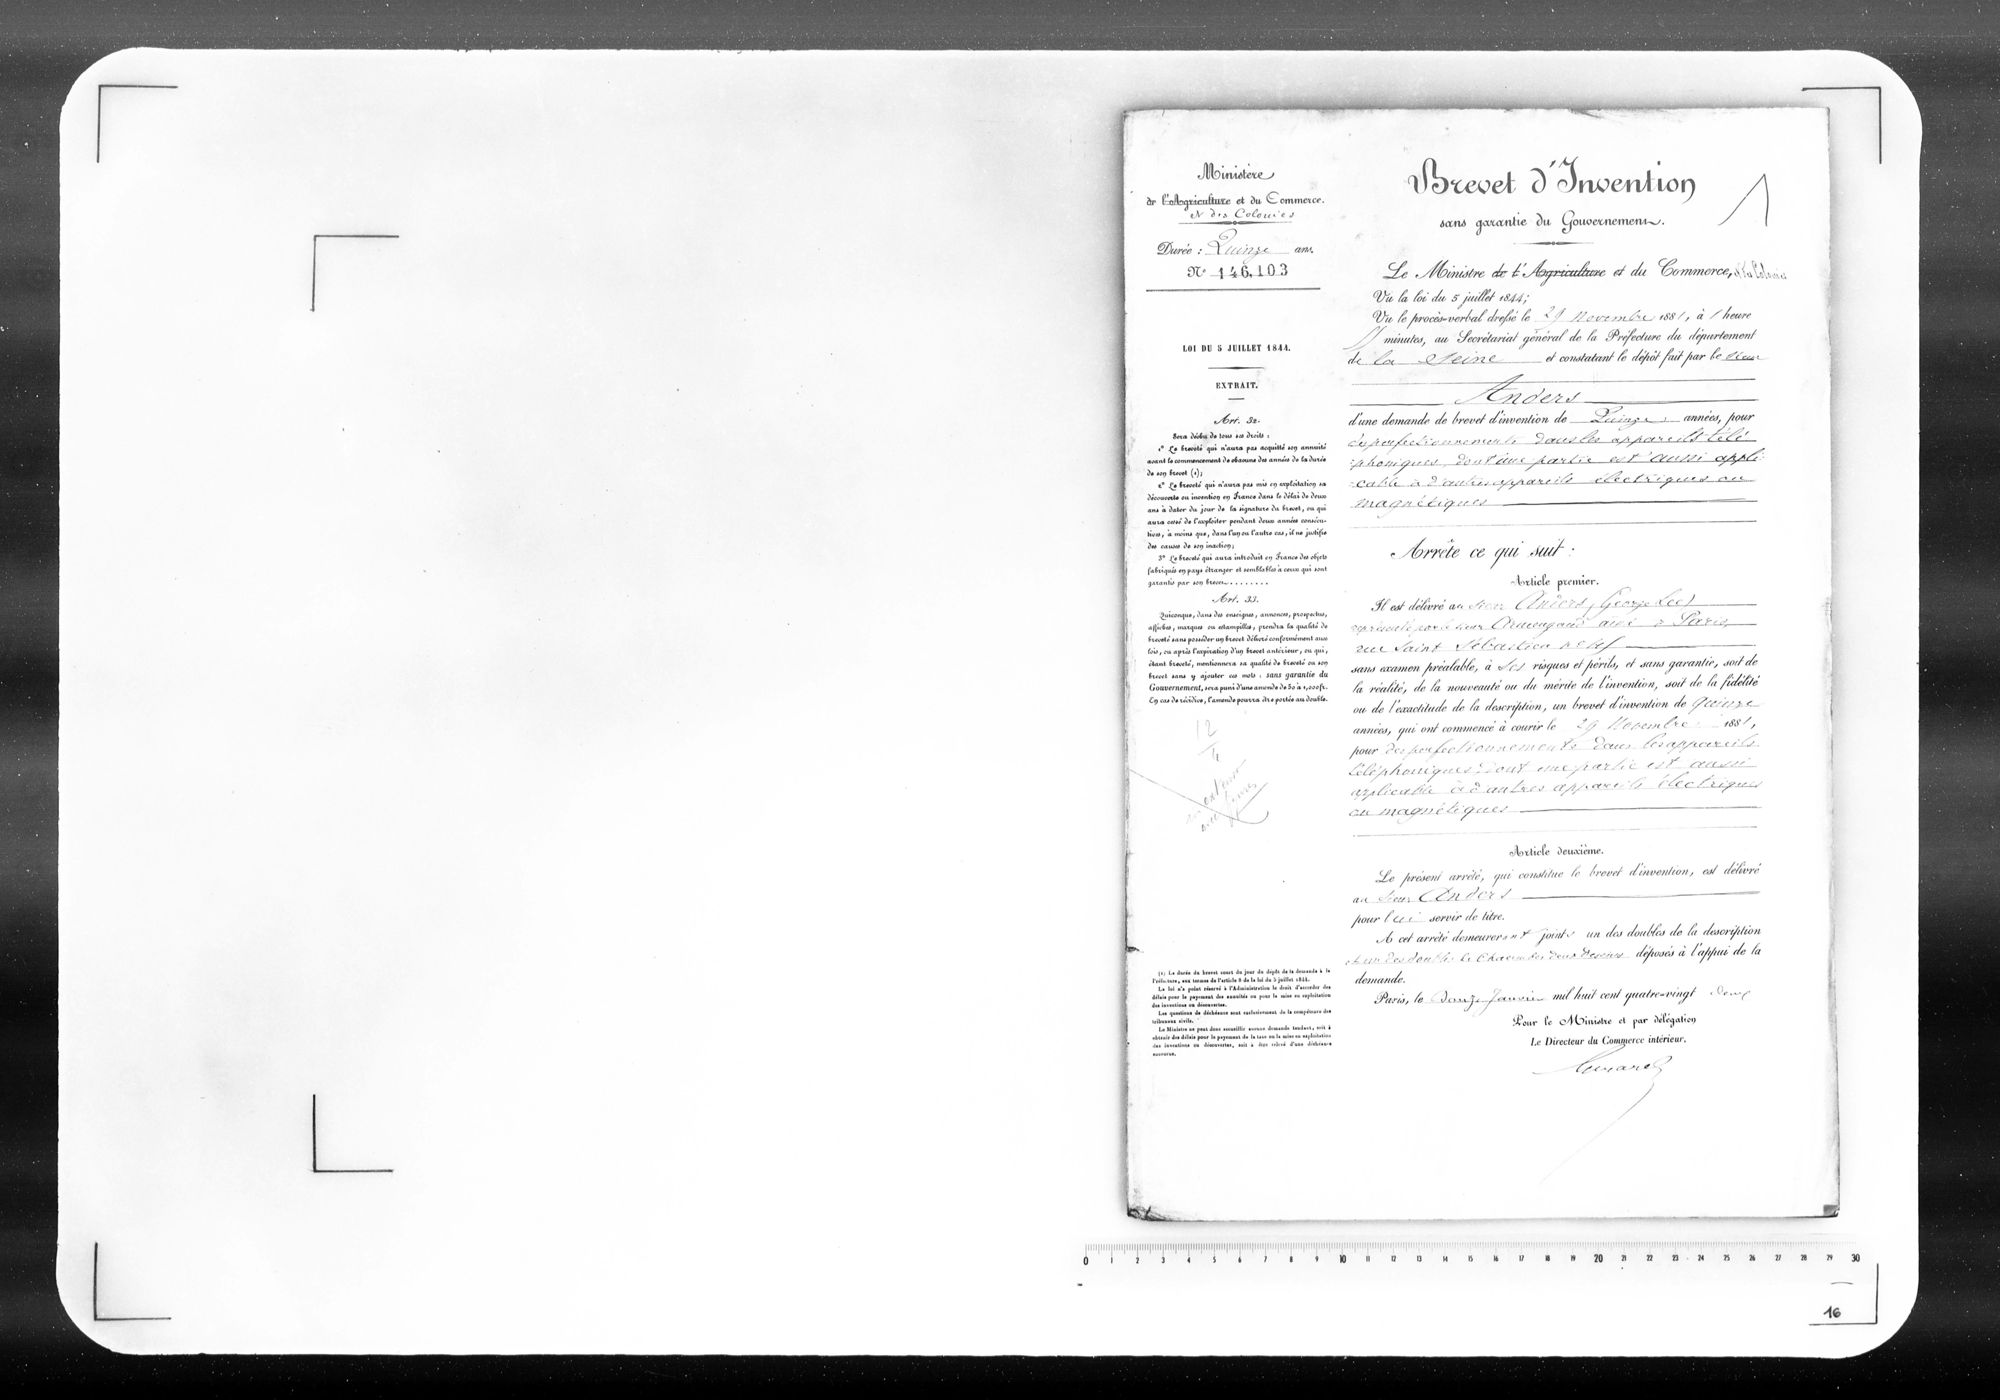 Ministère
de l'Agriculture et du Commerce.
et des Colonies
Durée : Quinze ans.
N° 146.103
LOI DU 5 JUILLET 1844.
EXTRAIT.
Art. 32.
Sera déchu de tous ses droits :
1° Le breveté qui n'aura pas acquitté son annuité
avant le commencement de chacune des années de la durée
de son brevet (1);
2° Le breveté qui n'aura pas mis en exploitation sa
découverte ou invention en France dans le délai de deux
ans à dater du jour de la signature du brevet, ou qui
aura cessé de l'exploiter pendant deux années consécu-
tives, à moins que, dans l'un ou l'autre cas, il ne justifie
des causes de son inaction;
3° Le breveté qui aura introduit en France des objets
fabriqués en pays étranger et semblables à ceux qui sont
garantis par son brevet........
Art. 33.
Quiconque, dans des enseignes, annonces, prospectus,
affiches, marques ou estampilles, prendra la qualité de
breveté sans posséder un brevet délivré conformément aux
lois, ou après l'expiration d'un brevet antérieur, ou qui,
étant breveté, mentionnera sa qualité de breveté ou son
brevet sans y ajouter ces mots : sans garantie du
Gouvernement, sera puni d'une amende de 50 à 1,000 fr.
En cas de récidive, l'amende pourra être portée au double.
12
4
(1) La durée du brevet court du jour du dépôt de la demande à la
Préfecture, aux termes de l'article 8 de la loi du 5 juillet 1844.
La loi n'a point réservé à l'Administration le droit d'accorder des
délais pour le payement des annuités ou pour la mise en exploitation
des inventions ou découvertes.
Les questions de déchéance sont exclusivement de la compétence des
tribunaux civils.
Le Ministre ne peut donc accueillir aucune demande tendant, soit à
obtenir des délais pour le payement de la taxe ou la mise en exploitation
des inventions ou découvertes, soit à être relevé d'une déchéance
encourue.
Brevet d'Invention
sans garantie du Gouvernement.
1
Le Ministre de l'Agriculture et du Commerce, et des Colonies
Vu la loi du 5 juillet 1844;
Vu le procès-verbal dressé le 29 Novembre 1881, à 1 heure
minutes, au Secrétariat général de la Préfecture du département
de la Seine et constatant le dépôt fait par le sieur
Anders
d'une demande de brevet d'invention de Quinze années, pour
des perfectionnements dans les appareils télé
-phoniques, dont une partie est aussi appli
-cable à d'autres appareils électriques ou
magnétiques
Arrête ce qui suit :
Article premier.
Il est délivré au sieur Anders (George Lee)
représenté par le sieur Armengaud aîné à Paris,
rue Saint Sébastien n° 45
sans examen préalable, à ses risques et périls, et sans garantie, soit de
la réalité, de la nouveauté ou du mérite de l'invention, soit de la fidélité
ou de l'exactitude de la description, un brevet d'invention de quinze
années, qui ont commencé à courir le 29 Novembre 1881,
pour des perfectionnements dans les appareils
téléphoniques dont une partie est aussi
applicable à d'autres appareils électriques
ou magnétiques
Article deuxième.
Le présent arrêté, qui constitue le brevet d'invention, est délivré
au sieur Anders
pour lui servir de titre.
A cet arrêté demeureront joints un des doubles de la description
et un des doubles de chacun des deux dessins déposés à l'appui de la
demande.
Paris, le douze Janvier mil huit cent quatre-vingt deux
Pour le Ministre et par délégation
Le Directeur du Commerce intérieur.
0 1 2 3 4 5 6 7 8 9 10 11 12 13 14 15 16 17 18 19 20 21 22 23 24 25 26 27 28 29 30
16